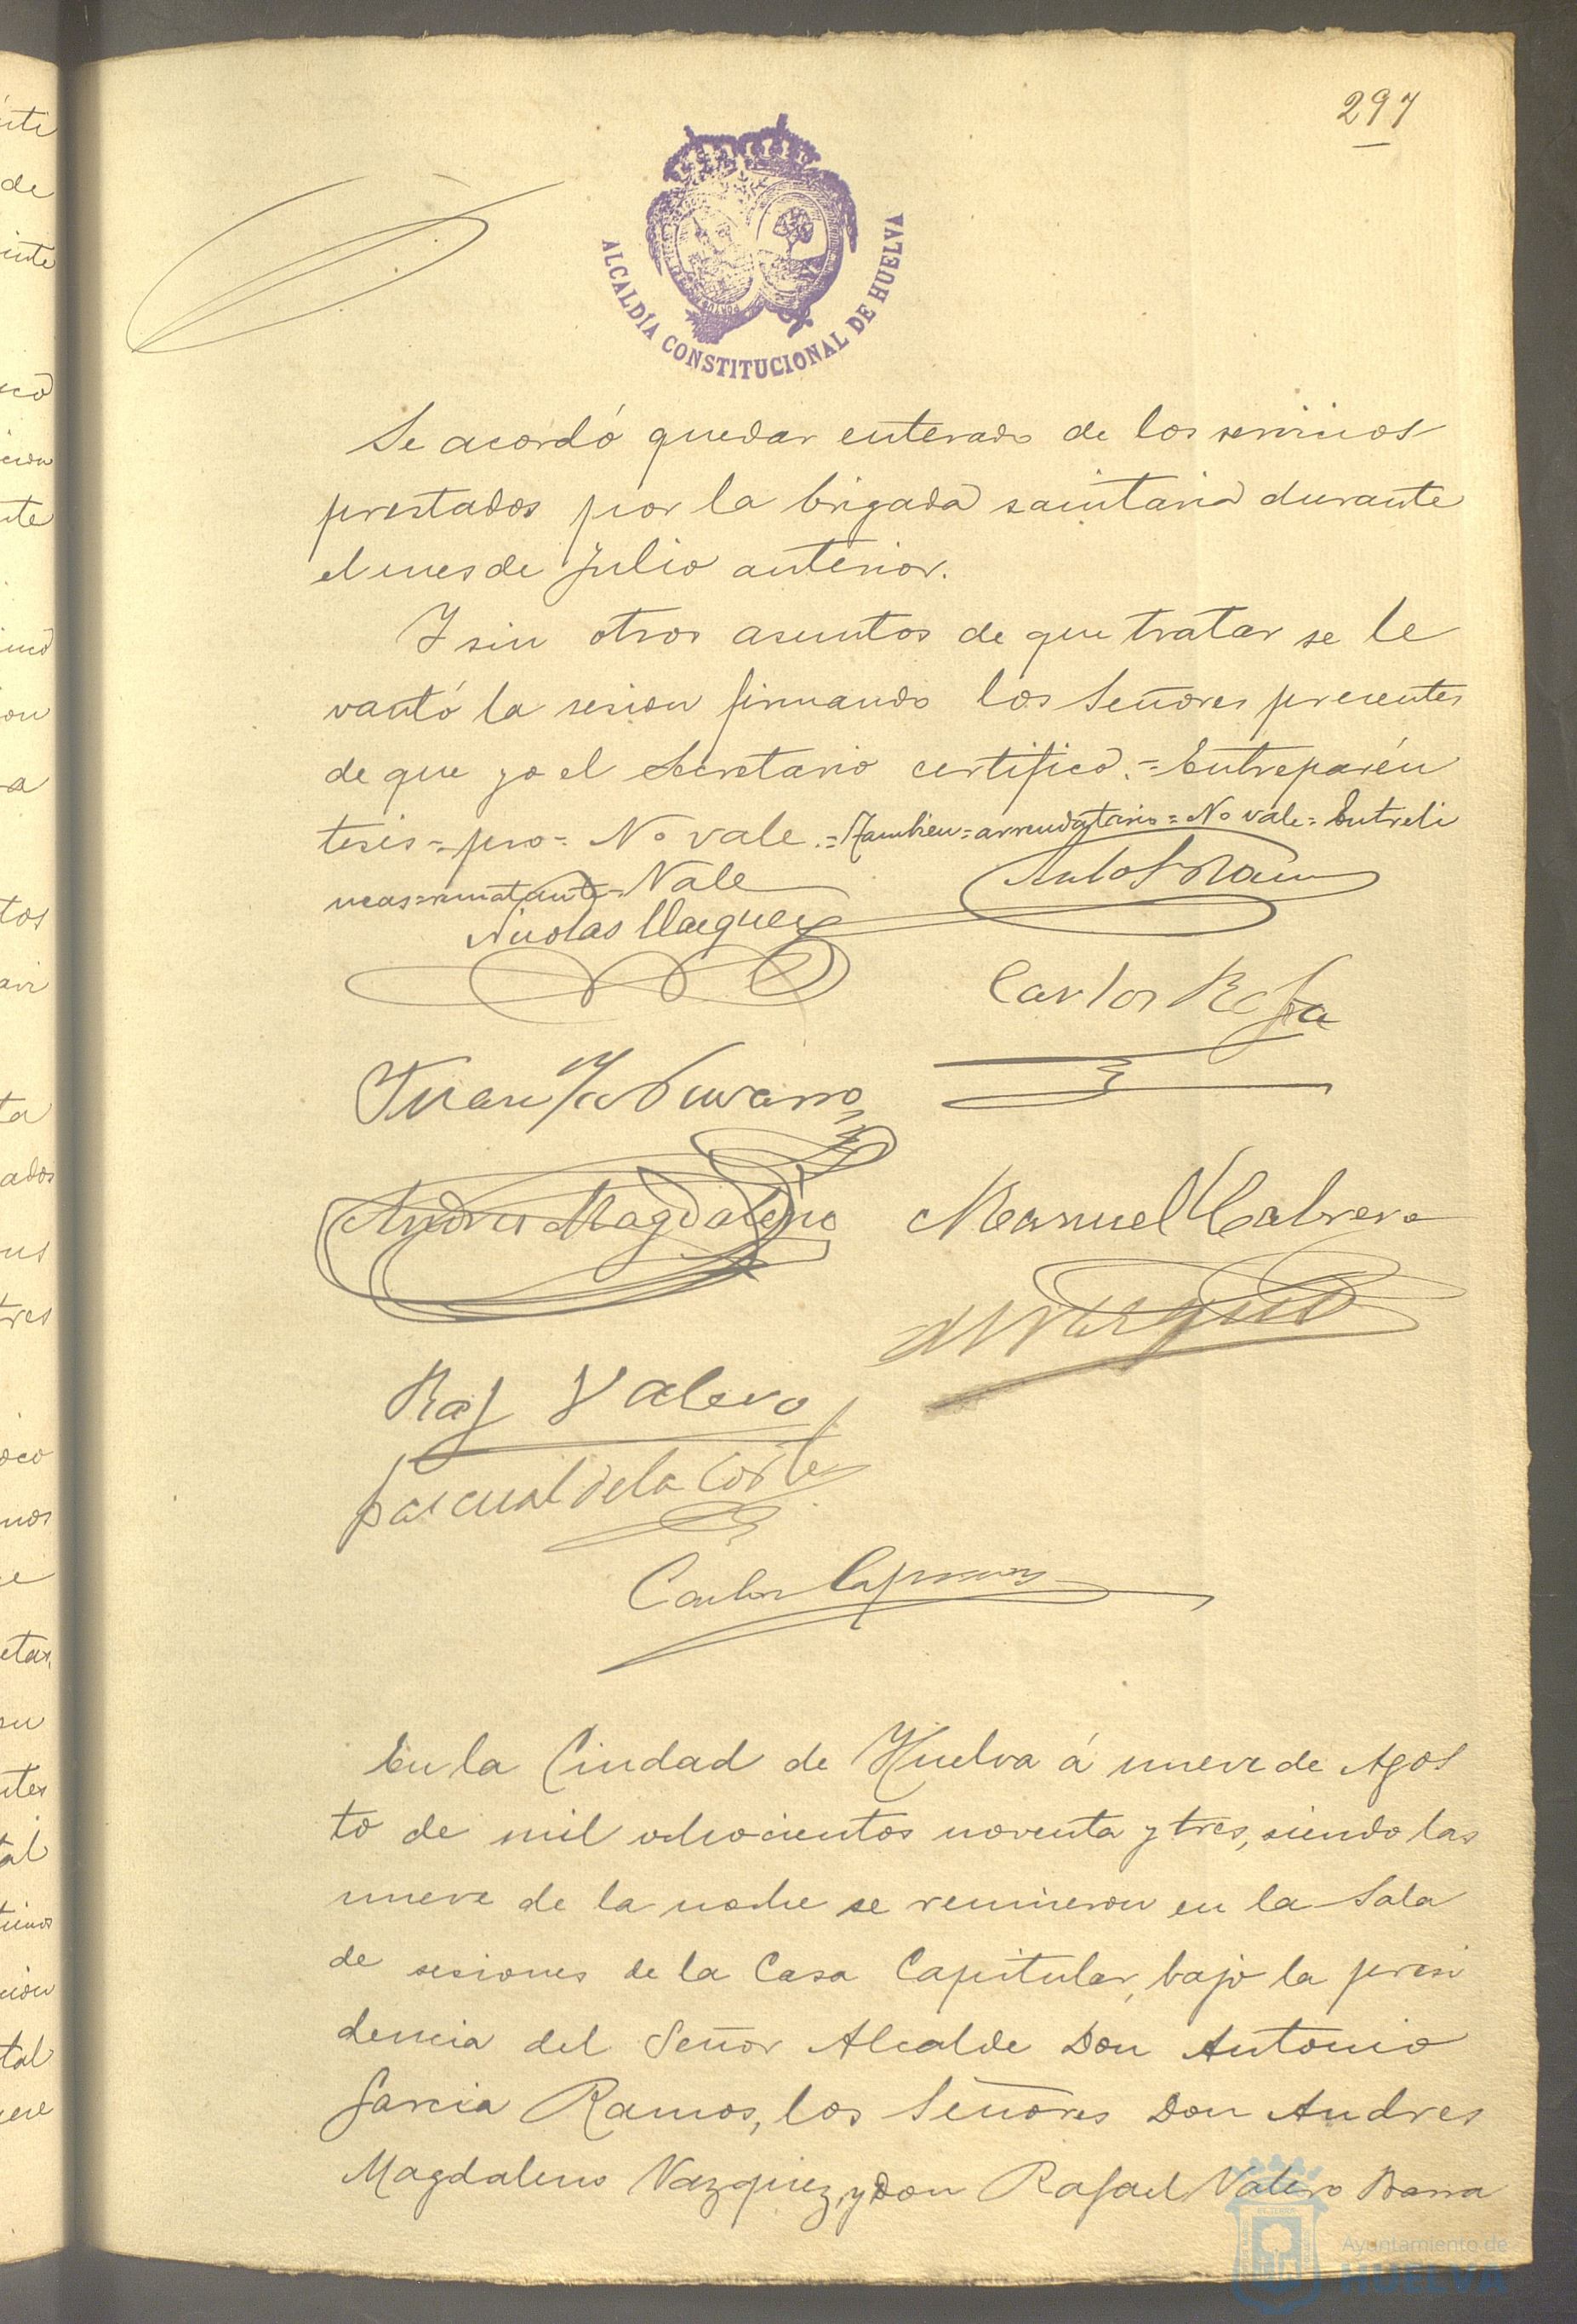 297
ALCALDÍA CONSTITUCIONAL DE HUELVA
Se acordó quedar enterado de los servicios
prestados por la brigada sanitaria durante
el mes de Julio anterior.
Y sin otros asuntos de que tratar se le
vantó la sesion firmando los Señores presentes
de que yo el Secretario certifico.=Entreparén
tesis=pro= No vale.=Tambien=arrendatario=No vale=Entreli
neas=rematante=Vale
Nicolas Vazquez
Carlos Rofa
Juan Navarro
Andres Magdaleno
Manuel Cabrera
Vazquez
Raf Valero
Pascual de la Corte
Carlos
En la Ciudad de Huelva á nueve de Agos
to de mil ochocientos noventa y tres, siendo las
nueve de la noche se reunieron en la Sala
de sesiones de la Casa Capitular, bajo la presi
dencia del Señor Alcalde Don Antonio
Garcia Ramos, los Señores Don Andres
Magdaleno Vazquez, y Don Rafael Valero Barra
Ayuntamiento de
HUELVA